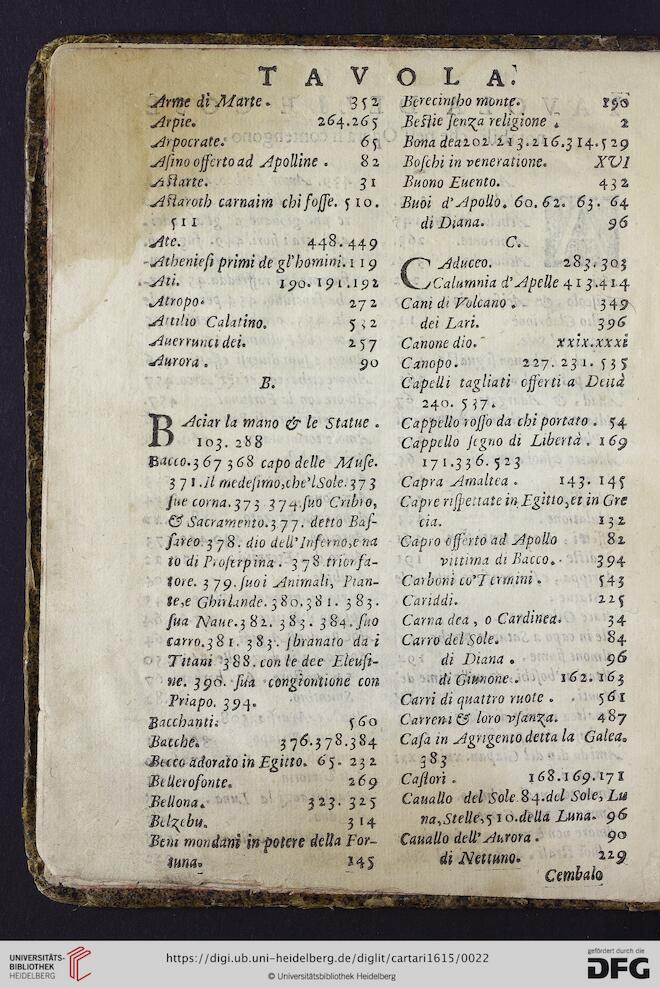 TAVOLA.
Arme di Marte. 352
Arpie. 264.265
Arpocrate. 65
Asino offerto ad Apolline. 82
Astarte. 31
Astaroth carnaim chi fosse. 510.
511
Ate. 448.449
Atheniesi primi de gl'homini. 119
Ati. 190.191.192
Atropo. 272
Attilio Calatino. 532
Auerrunci dei. 257
Aurora. 90
B.
BAciar la mano & le Statue.
103. 288
Bacco. 367 368 capo delle Muse.
371. Il medesimo, che'l Sole. 373
sue corna. 373 374. suo Cribro,
& Sacramento. 377. detto Bas-
sareo. 378. dio dell'Inferno, e na
to di Proserpina. 378 trionfa-
tore. 379. suoi Animali, Pian-
te, e Ghirlande. 380.381. 383.
sua Naue. 382. 383. 384. suo
carro. 381. 383. sbranato da i
Titani 388. con le dee Eleusi-
ne. 390. sua congiontione con
Priapo. 394.
Bacchanti. 560
Bacche. 376.378.384
Becco adorato in Egitto. 65. 232
Bellerofonte. 269
Bellona. 323. 325
Belzebu. 314
Beni mondani in potere della For-
tuna. 145
Berecintho monte. 190
Bestie senza religione. 2
Bona dea 202.213.216.314.529
Boschi in veneratione. XVI
Buono Euento. 432
Buoi d'Apollo. 60. 62. 63. 64
di Diana. 96
C.
CAduceo. 283.303
Calumnia d'Apelle 413.414
Cani di Volcano. 349
dei Lari. 396
Canone dio. xxix.xxxi
Canopo. 227. 231. 535
Capelli tagliati offerti a Deità
240. 537.
Cappello rosso da chi portato. 54
Cappello segno di Libertà. 169
171.336.523
Capra Amaltea. 143. 145
Capre rispettate in Egitto, et in Gre
cia. 132
Capro offerto ad Apollo 82
vittima di Bacco. 394
Carboni co' Termini. 543
Cariddi. 225
Carna dea, o Cardinea. 34
Carro del Sole. 84
di Diana. 96
di Giunone. 162.163
Carri di quattro ruote. 561
Carreni & loro vsanza. 487
Casa in Agrigento detta la Galea.
383
Castori. 168.169.171
Cauallo del Sole 84. del Sole, Lu
na, Stelle, 510. della Luna. 96
Cauallo dell'Aurora. 90
di Nettuno. 229
Cembalo
UNIVERSITÄTS-
BIBLIOTHEK
HEIDELBERG
https://digi.ub.uni-heidelberg.de/diglit/cartari1615/0022
© Universitätsbibliothek Heidelberg
gefördert durch die
DFG